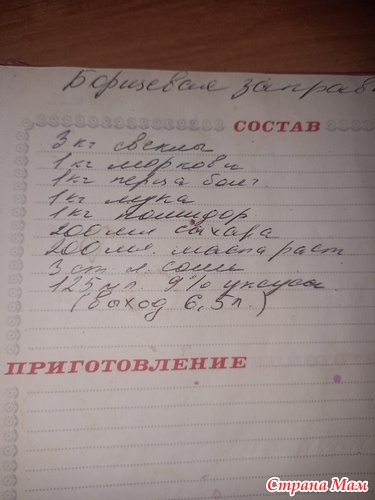 Борщевая заправ
СОСТАВ
3 кг свеклы
1 кг моркови
1 кг перца болг
1 кг лука
1 кг помидор
200 мл сахара
200 мл. масла раст
3 ст л соли
125 мл. 9% уксуса
(выход 6,5 л.)
ПРИГОТОВЛЕНИЕ
Страна Мам